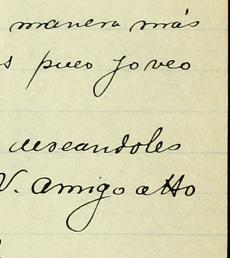 manera más
s pues yo veo
deseandoles
V. amigo atto